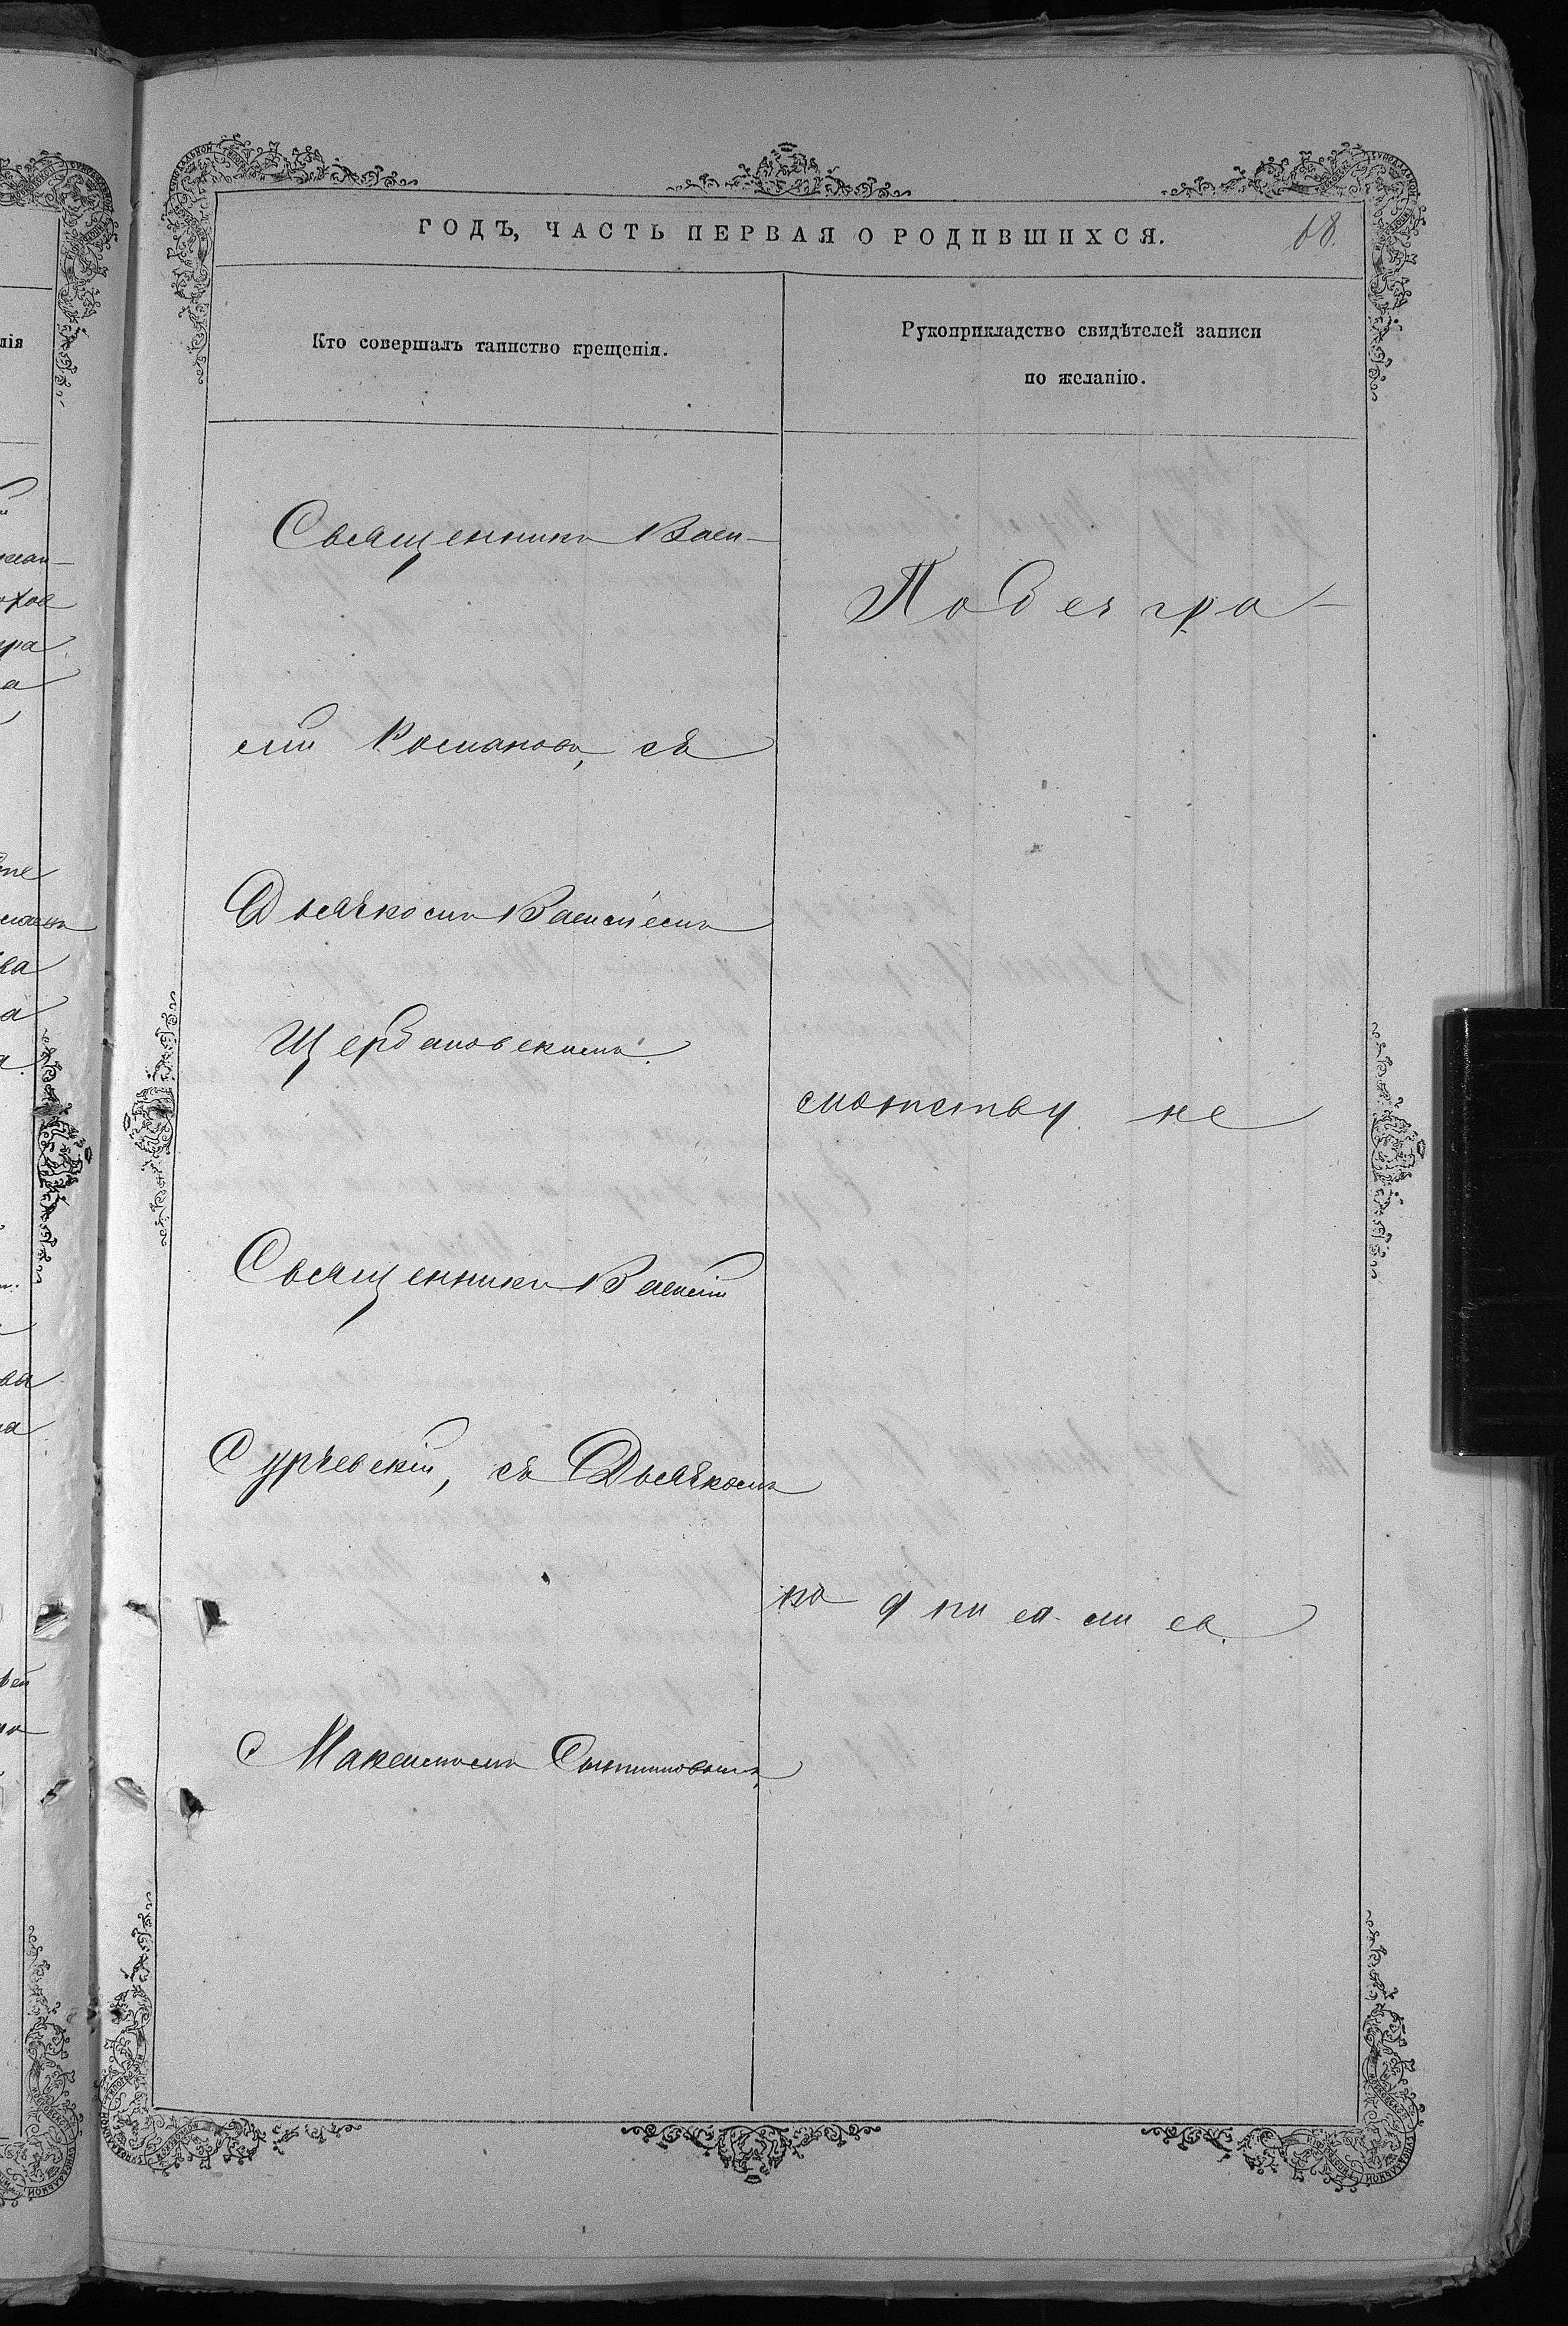 ГОДЪ, ЧАСТЬ ПЕРВАЯ О РОДИВШИХСЯ.
68.
Кто совершалъ таинство крещенія.
Рукоприкладство свидѣтелей записи
по желанію.
Священникъ Васи-
лій Романовъ, съ
Дьячкомъ Василіемъ
Щербановскимъ.
Священникъ Василій
Сурчевскій, съ Дьячкомъ
Максимомъ
По безгра-
мотству не
подписался.